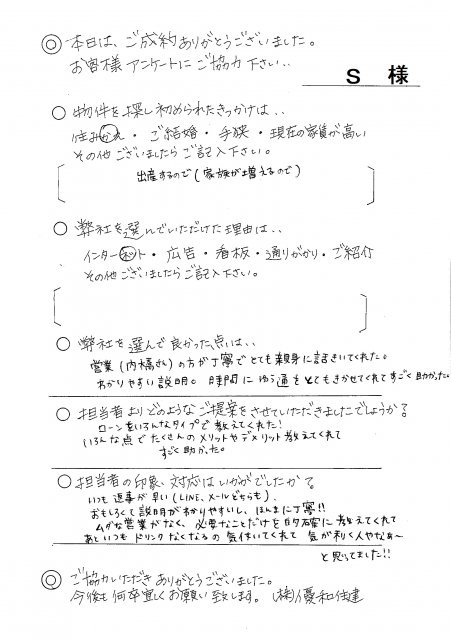 ◎ 本日は、ご成約ありがとうございました。
お客様アンケートにご協力下さい..
S 様
○ 物件を探し初められたきっかけは..
住みかえ・ご結婚・手狭・現在の家賃が高い
その他ございましたらご記入下さい。
出産するので(家族が増えるので)
○ 弊社を選んでいただけた理由は..
インターネット・広告・看板・通りがかり・ご紹介
その他ございましたらご記入下さい。
○ 弊社を選んで良かった点は..
営業(内橋さん)の方が丁寧でとても親身に話きいてくれた。
わかりやすい説明。時間にゆう通をとてもきかせてくれてすごく助かった。
○ 担当者よりどのようなご提案をさせていただきましたでしょうか?
ローンをいろんなタイプで教えてくれた!
いろんな点でたくさんのメリットやデメリット教えてくれて
すごく助かった。
○ 担当者の印象、対応はいかがでしたか?
いつも返事が早い(LINE、メールどちらも)、
おもしろくて説明がわかりやすいし、ほんまに丁寧!!
ムダな営業がなく、必要なことだけを的確に教えてくれて
あといつもドリンクなくなるの気付いてくれて気が利く人やなぁ〜
と思ってました!!
◎ ご協力いただきありがとうございました。
今後も何卒宜しくお願い致します。(株)優和住建